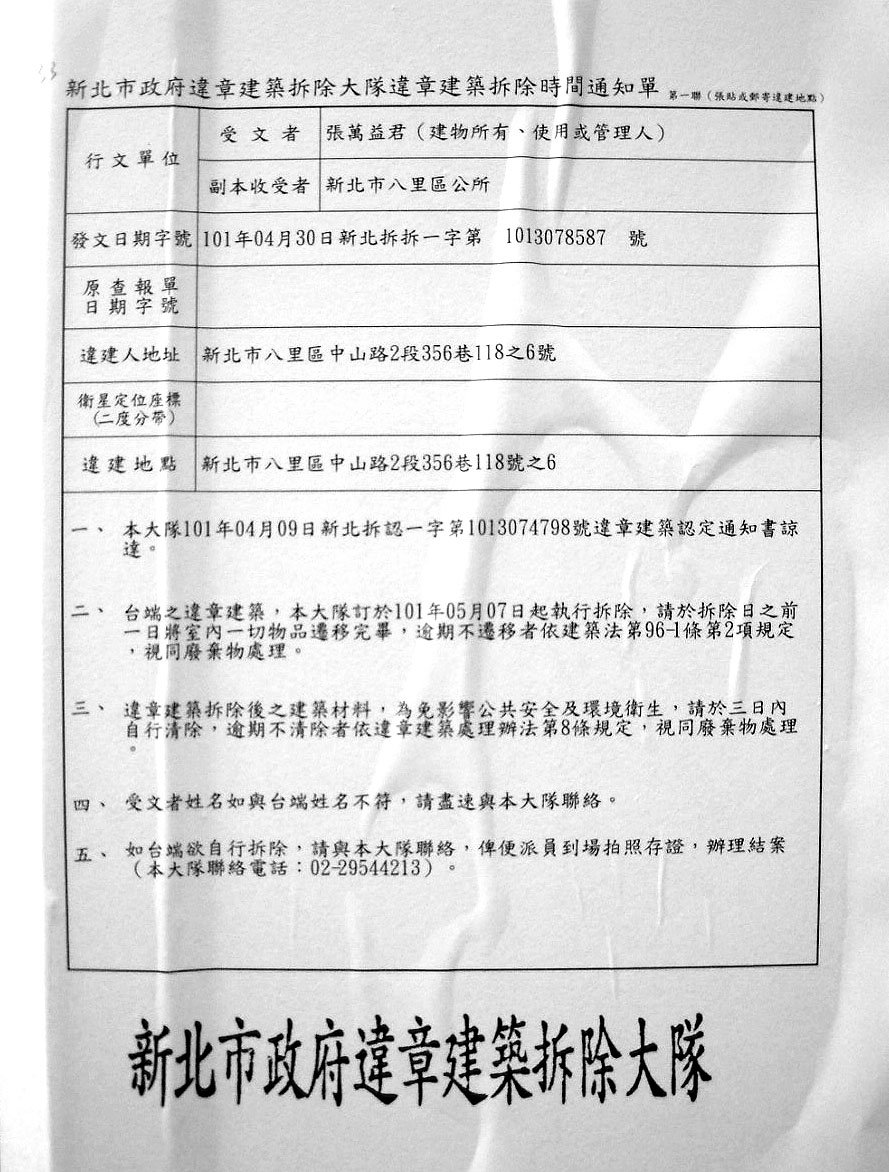 新北市政府違章建築拆除大隊違章建築拆除時間通知單 第一聯（張貼或郵寄違建地點）
行文單位
受文者 張萬益君（建物所有、使用或管理人）
副本收受者 新北市八里區公所
發文日期字號 101年04月30日新北拆拆一字第 1013078587 號
原查報單
日期字號
違建人地址 新北市八里區中山路2段356巷118之6號
衛星定位座標
（二度分帶）
違建地點 新北市八里區中山路2段356巷118號之6
一、 本大隊101年04月09日新北拆認一字第1013074798號違章建築認定通知書諒
達。
二、 台端之違章建築，本大隊訂於101年05月07日起執行拆除，請於拆除日之前
一日將室內一切物品遷移完畢，逾期不遷移者依建築法第96-1條第2項規定
，視同廢棄物處理。
三、 違章建築拆除後之建築材料，為免影響公共安全及環境衛生，請於三日內
自行清除，逾期不清除者依違章建築處理辦法第8條規定，視同廢棄物處理
。
四、 受文者姓名如與台端姓名不符，請盡速與本大隊聯絡。
五、 如台端欲自行拆除，請與本大隊聯絡，俾便派員到場拍照存證，辦理結案
（本大隊聯絡電話：02-29544213）。
新北市政府違章建築拆除大隊